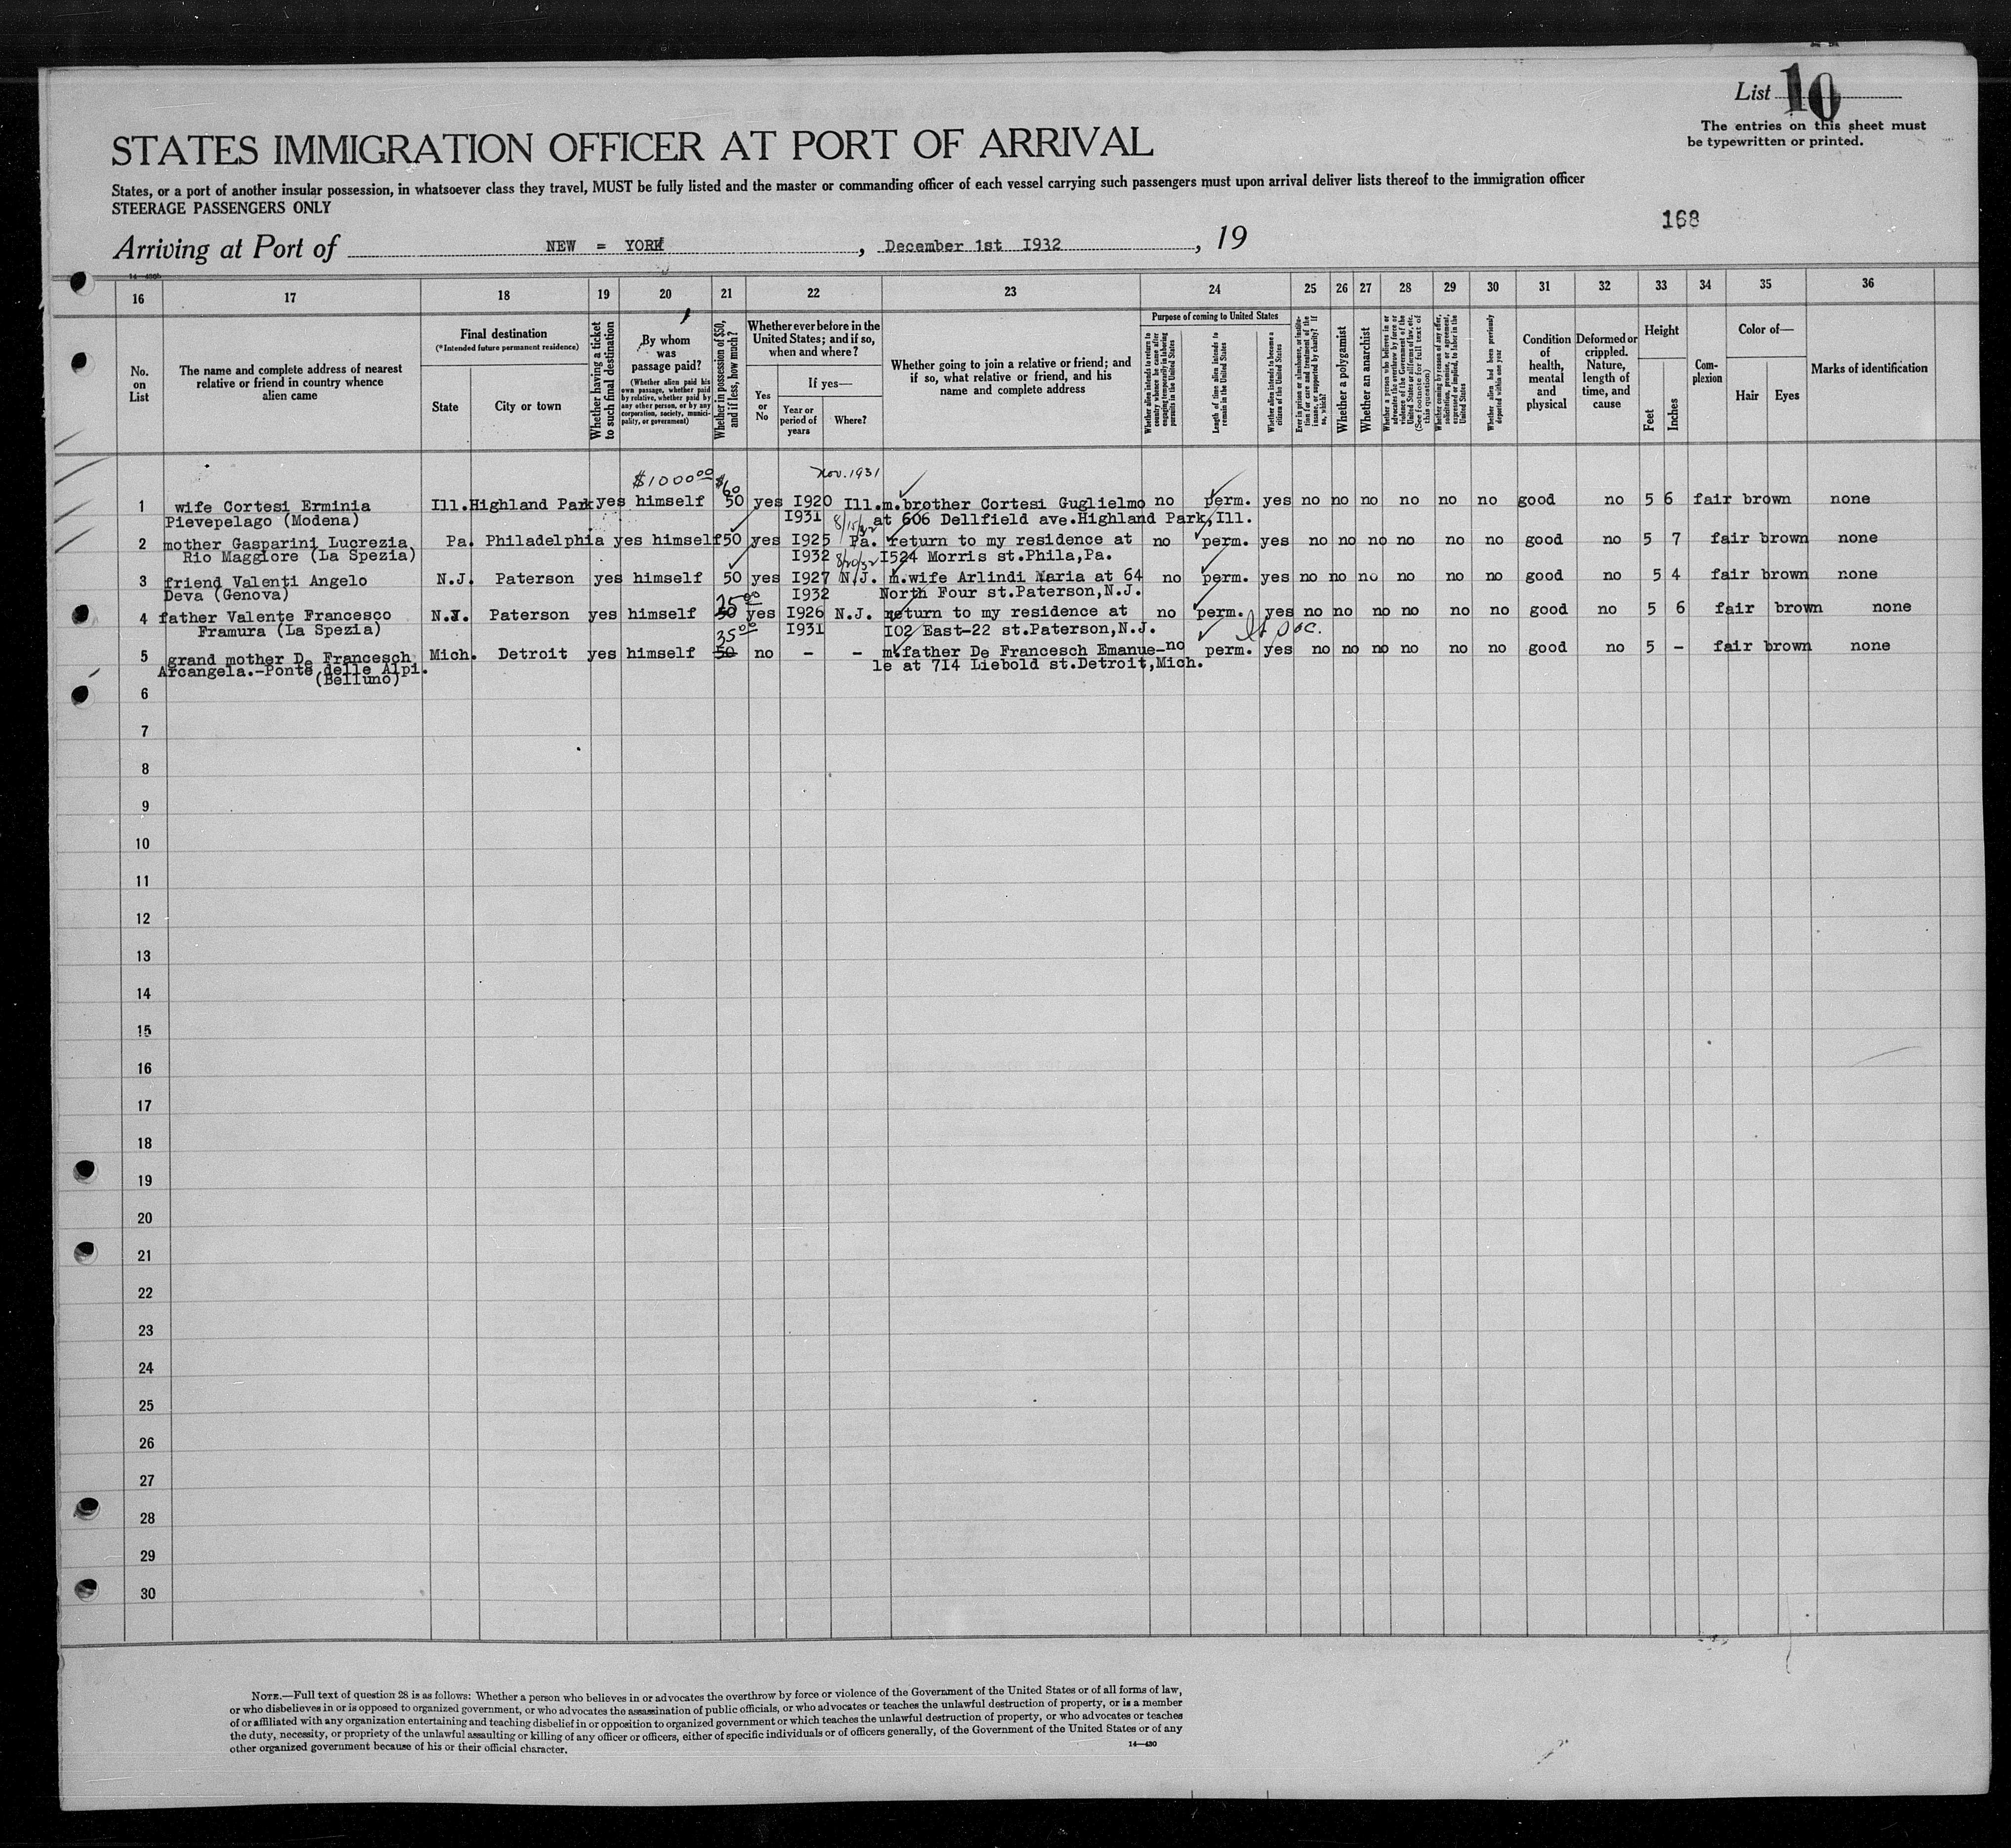 List 10
The entries on this sheet must
be typewritten or printed.
STATES IMMIGRATION OFFICER AT PORT OF ARRIVAL
States, or a port of another insular possession, in whatsoever class they travel, MUST be fully listed and the master or commanding officer of each vessel carrying such passengers must upon arrival deliver lists thereof to the immigration officer
STEERAGE PASSENGERS ONLY
168
Arriving at Port of NEW = YORK, December 1st I932, 19
16 17 18 19 20 21 22 23 24 25 26 27 28 29 30 31 32 33 34 35 36
No. on List
The name and complete address of nearest relative or friend in country whence alien came
Final destination
(*Intended future permanent residence)
State
City or town
Whether having a ticket to such final destination
By whom was passage paid?
(Whether alien paid his own passage, whether paid by relative, whether paid by any other person, or by any corporation, society, municipality, or government)
Whether in possession of $50, and if less, how much?
Whether ever before in the United States; and if so, when and where?
Yes or No
If yes—
Year or period of years
Where?
Whether going to join a relative or friend; and if so, what relative or friend, and his name and complete address
Purpose of coming to United States
Whether alien intends to return to country whence he came after engaging temporarily in laboring pursuits in the United States
Length of time alien intends to remain in the United States
Whether alien intends to become a citizen of the United States
Ever in prison or almshouse, or institution for care and treatment of the insane, or supported by charity? If so, which?
Whether a polygamist
Whether an anarchist
Whether a person who believes in or advocates the overthrow by force or violence of the Government of the United States or all forms of law, etc. (See footnote for full text of this question)
Whether coming by reason of any offer, solicitation, promise, or agreement, expressed or implied, to labor in the United States
Whether alien had been previously deported within one year
Condition of health, mental and physical
Deformed or crippled. Nature, length of time, and cause
Height
Feet
Inches
Complexion
Color of—
Hair
Eyes
Marks of identification
$1000 00 $60 Nov. 1931
1 wife Cortesi Erminia Ill. Highland Park yes himself 50 yes I920 Ill. m.brother Cortesi Guglielmo no perm. yes no no no no no no good no 5 6 fair brown none
Pievepelago (Modena) I931 at 606 Dellfield ave.Highland Park,Ill.
8/15/32
2 mother Gasparini Lucrezia Pa. Philadelphia yes himself 50 yes I925 Pa. return to my residence at no perm. yes no no no no no no good no 5 7 fair brown none
Rio Maggiore (La Spezia) I932 I524 Morris st.Phila,Pa.
8/20/32
3 friend Valenti Angelo N.J. Paterson yes himself 50 yes I927 N.J. m.wife Arlindi Maria at 64 no perm. yes no no no no no no good no 5 4 fair brown none
Deva (Genova) I932 North Four st.Paterson,N.J.
25 00
4 father Valente Francesco N.J. Paterson yes himself 50 yes I926 N.J. return to my residence at no perm. yes no no no no no no good no 5 6 fair brown none
Framura (La Spezia) I931 I02 East-22 st.Paterson,N.J.
35 00
5 grand mother De Francesch Mich. Detroit yes himself 50 no - - m.father De Francesch Emanue- no perm. yes no no no no no no good no 5 - fair brown none
Arcangela.-Ponte delle Alpi. le at 7I4 Liebold st.Detroit,Mich.
(Belluno)
6
7
8
9
10
11
12
13
14
15
16
17
18
19
20
21
22
23
24
25
26
27
28
29
30
NOTE.—Full text of question 28 is as follows: Whether a person who believes in or advocates the overthrow by force or violence of the Government of the United States or of all forms of law,
or who disbelieves in or is opposed to organized government, or who advocates the assassination of public officials, or who advocates or teaches the unlawful destruction of property, or is a member
of or affiliated with any organization entertaining and teaching disbelief in or opposition to organized government or which teaches the unlawful destruction of property, or who advocates or teaches
the duty, necessity, or propriety of the unlawful assaulting or killing of any officer or officers, either of specific individuals or of officers generally, of the Government of the United States or of any
other organized government because of his or their official character.
14—430